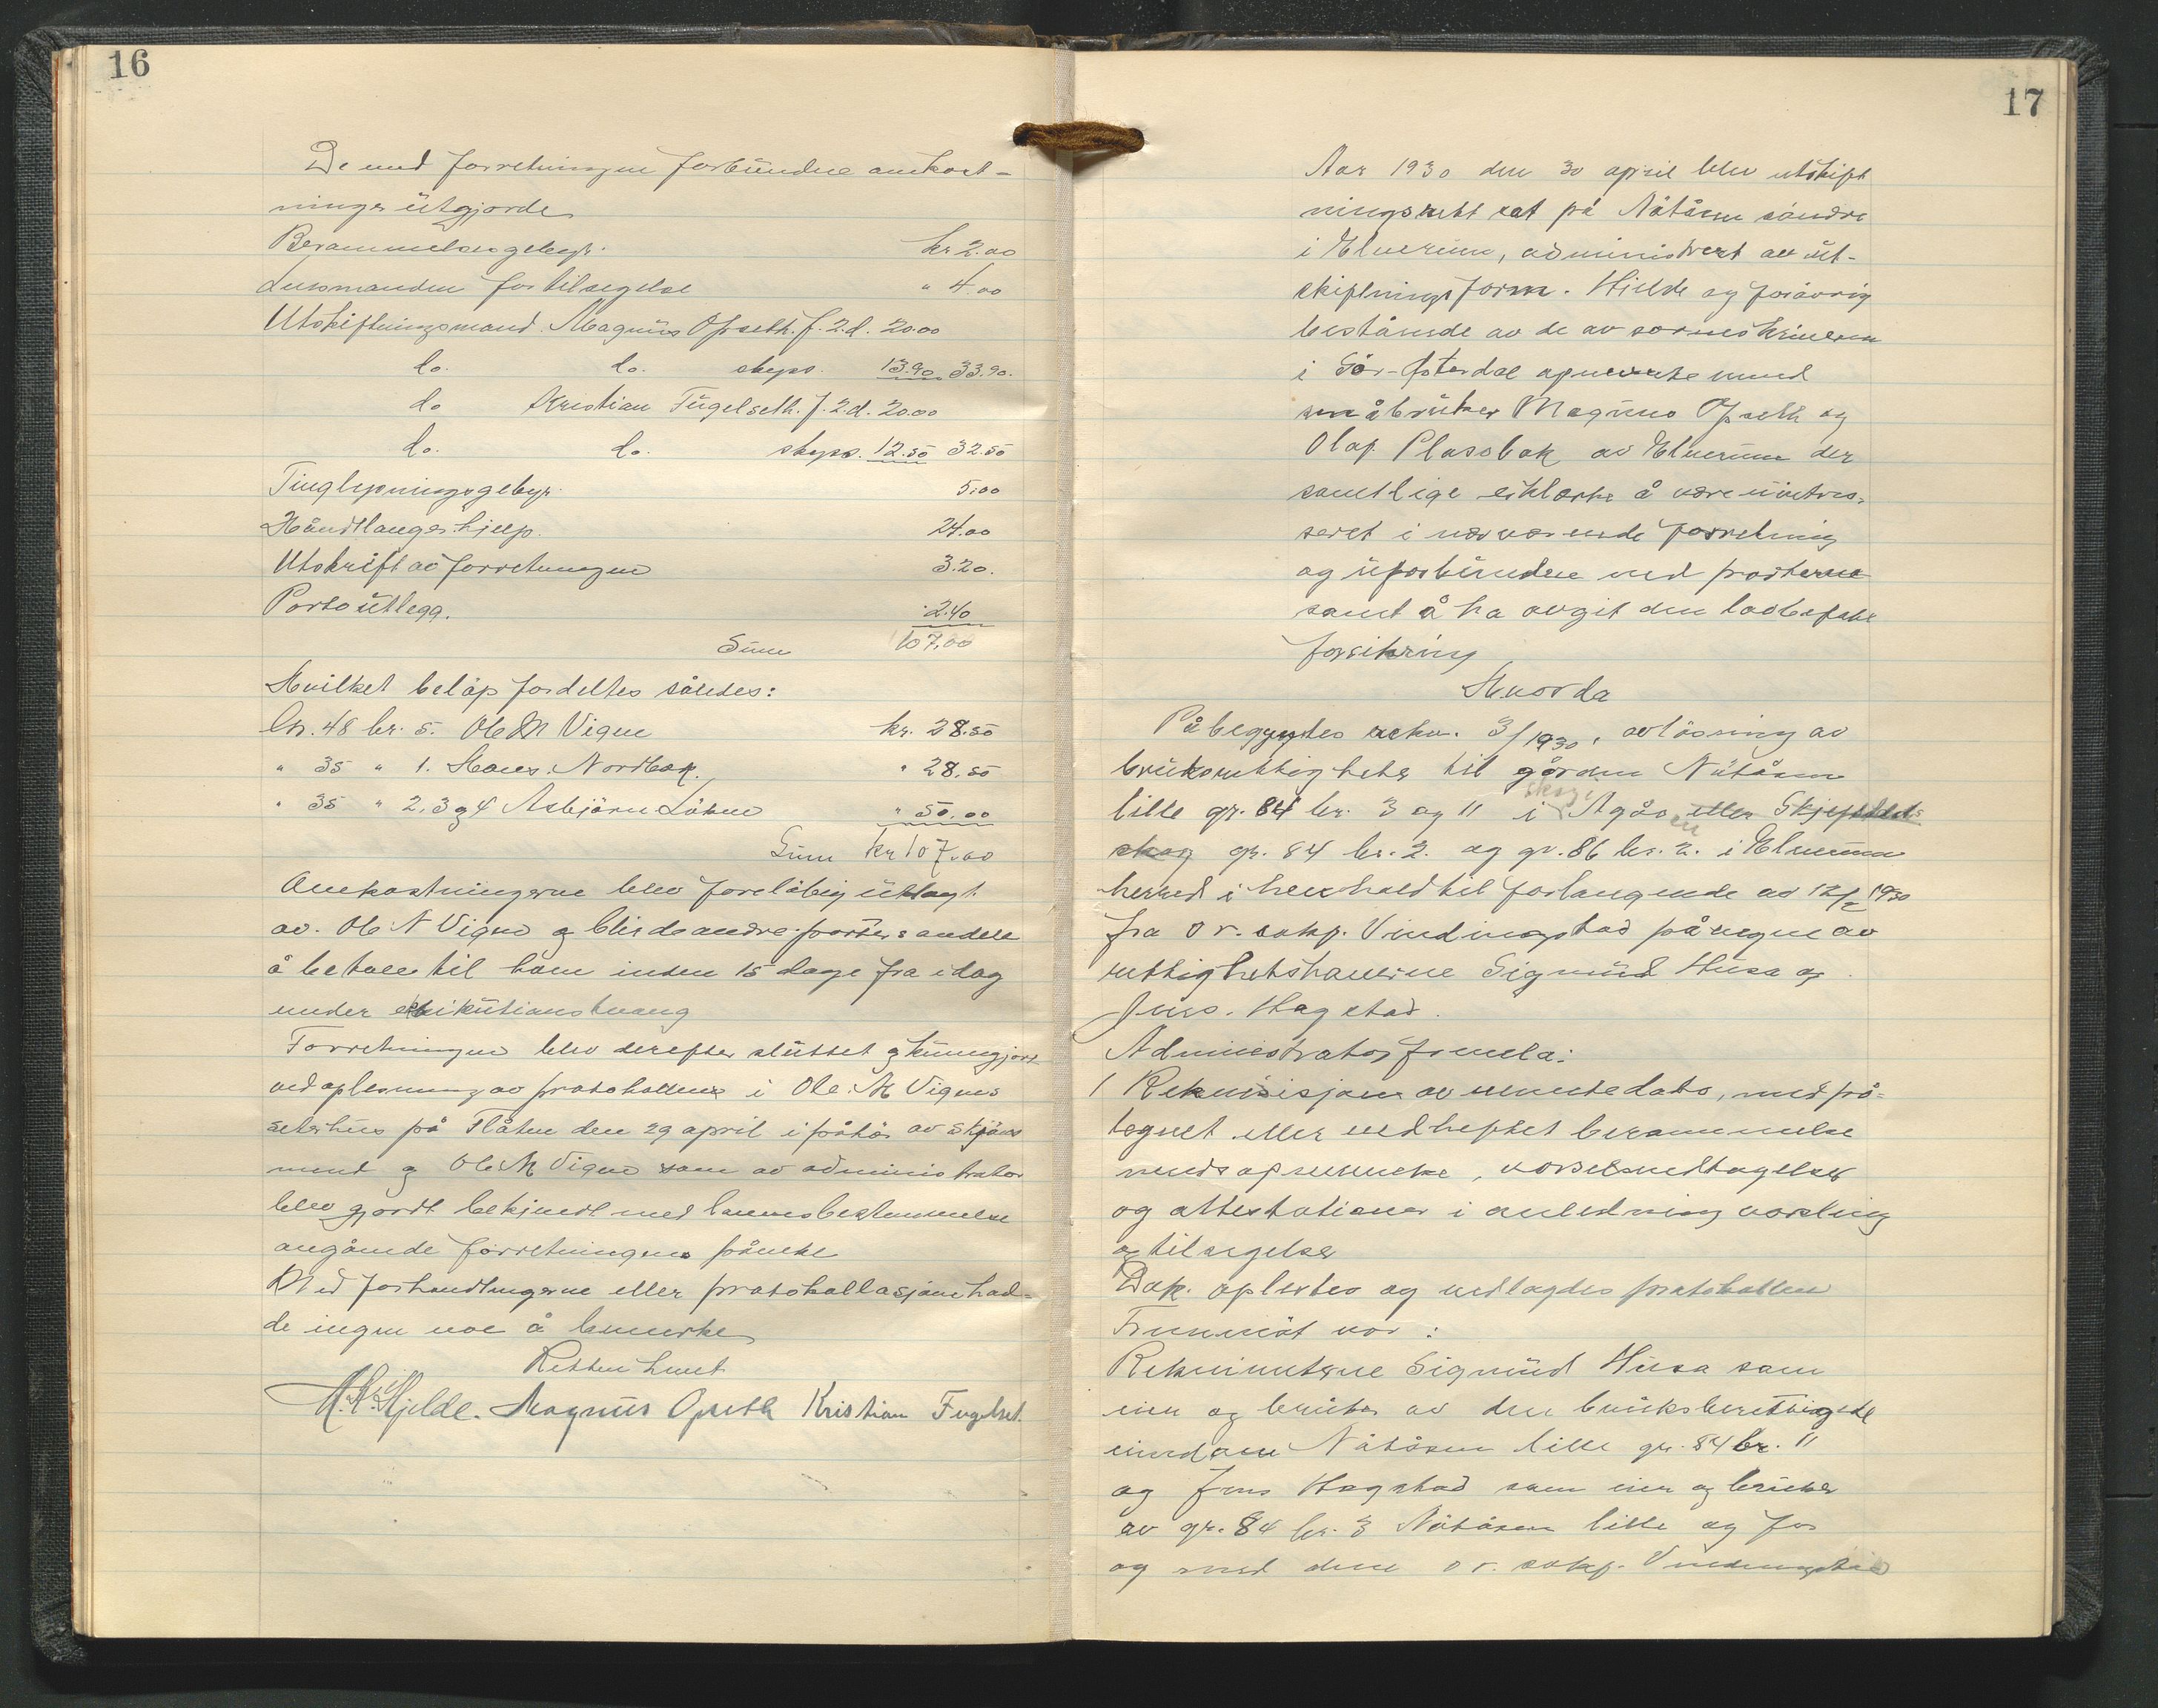 16
De med forretningen forbundne omkost-
ninger utgjorde
Berammelsesgebyr. kr 2.00
Lensmanden for tilsigelse " 4.00
Utskiftningsmand Magnus Opseth. f. 2.d. 20.00
do. do. skyss. 13.90 33.90.
do Kristian Fugelseth. f. 2.d. 20.00
do. do. skyss. 12.50 32.50
Tinglysningsgebyr. 5.00
Håndlangerhjelp. 24.00
Utskrift av forretningen 3.20.
Porto utlegg. 2.40
Sum 107.00
Hvilket beløp fordeltes således:
Gn. 48 br. 5. Ole M Vigen kr. 28.50
" 35 " 1. Hans. Nordbak. " 28.50
" 35 " 2, 3 og 4 Asbjørn Løken " 50.00
Sum kr 107.00
Omkostningerne blev foreløbig utlagt
av. Ole N Vigen og blir de andre parters andele
å betale til ham inden 15 dage fra idag
under eksikutionstvang
Forretningen blev derefter sluttet og kunngjort
ved oplesning av protokollen i Ole. M Vigens
seterhus på Flåten den 29 april i påhør av skjøns
mend og Ole M Vigen som av administrator
blev gjordt bekjendt med lovens bestemmelse
angående forretningens påanke
Med forhandlingerne eller protokollasjonen had-
de ingen noe å bemerke
Retten hevet
M. K. Hjelde. Magnus Opseth Kristian Fugelset.
17
Aar 1930 den 30 april blev utskift
ningsrett sat på Nåtåsen søndre
i Elverum, administrert av ut-
skiftningsform. Hjelde og forøvrig
bestående av de av sorenskriveren
i Sør-Østerdal opnevnte mend
småbruker Magnus Opseth og
Olaf Plassbak av Elverum der
samtlige erklærte å være uintres-
seret i nærværende forretning
og uforbundne med parterne
samt å ha avgit den lovbefalte
forsikring
Hvorda
Påbegyndtes rekv. 3/1930, avløsning av
bruksrettigheter til gården Nåtåsen
lille gr. 84 br. 3 og 11 i Agås eller Skjefstad
skog gr. 84 br. 2. og gr. 86 br. 2. i Elverum
herred i henhold til forlangende av 12/2 1930
fra o r. sakf. Vindingstad på vegne av
rettighetshaverne Sigmund Husa og
Jens. Hagstad.
Administrator fremla:
1 Rekvisisjon av nevnte dato, med på-
tegnet eller vedheftet berammelse
mendsopnevnelse, varselsvedtagelser
og attestationer i anledning varsling
og tilsigelse
Dok. oplestes og vedlagdes protokollen
Fremmøt var:
Rekvirenterne Sigmund Husa som
eier og bruker av den bruksberettigede
eiendom Nåtåsen lille gr. 84 br. 11
og Jens Hagstad som eier og bruker
av gr. 84 br. 3 Nåtåsen lille og for
og med dem o r. sakf. Vindingstad